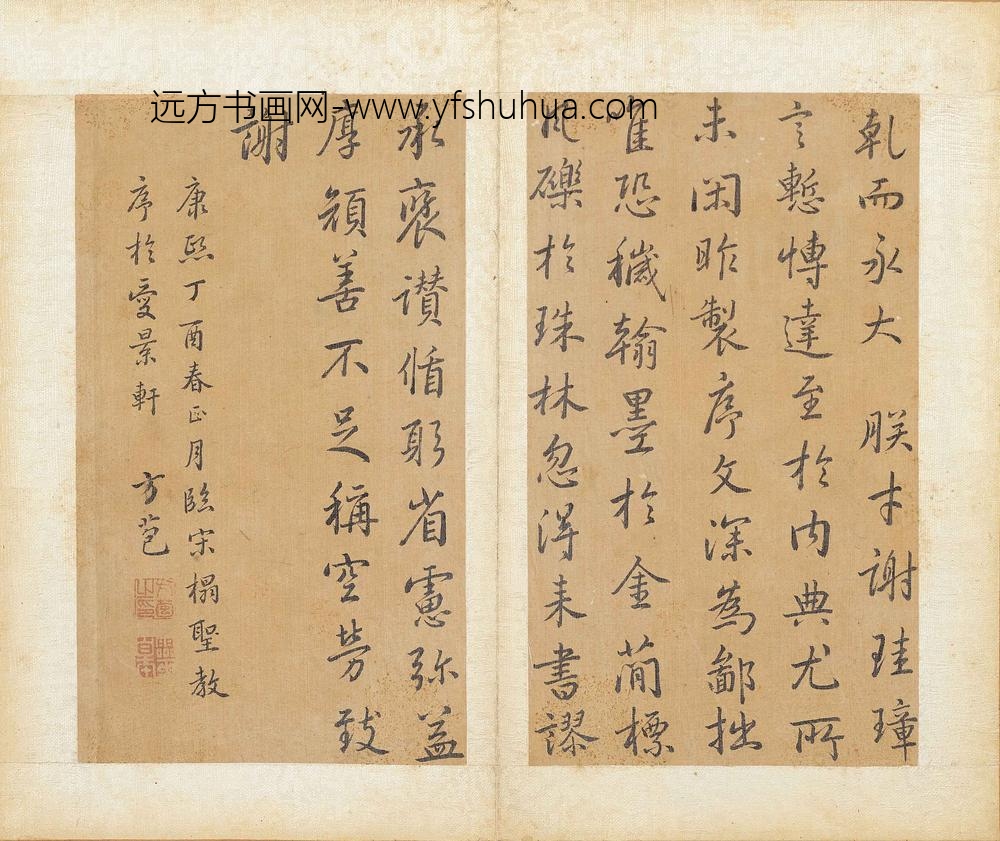 远方书画网-www.yfshuhua.com
乹而永大朕才謝珪璋
言慙愽達至扵内典尤所
未閑昨製序文深為鄙拙
惟恐穢翰墨扵金蕳標
瓦礫扵珠林忽淂来書謬
承褒讃循躬省慮弥益
厚顔善不足稱空勞致
謝
康熙丁酉春正月臨宋榻聖教
序扵愛景軒 方苞